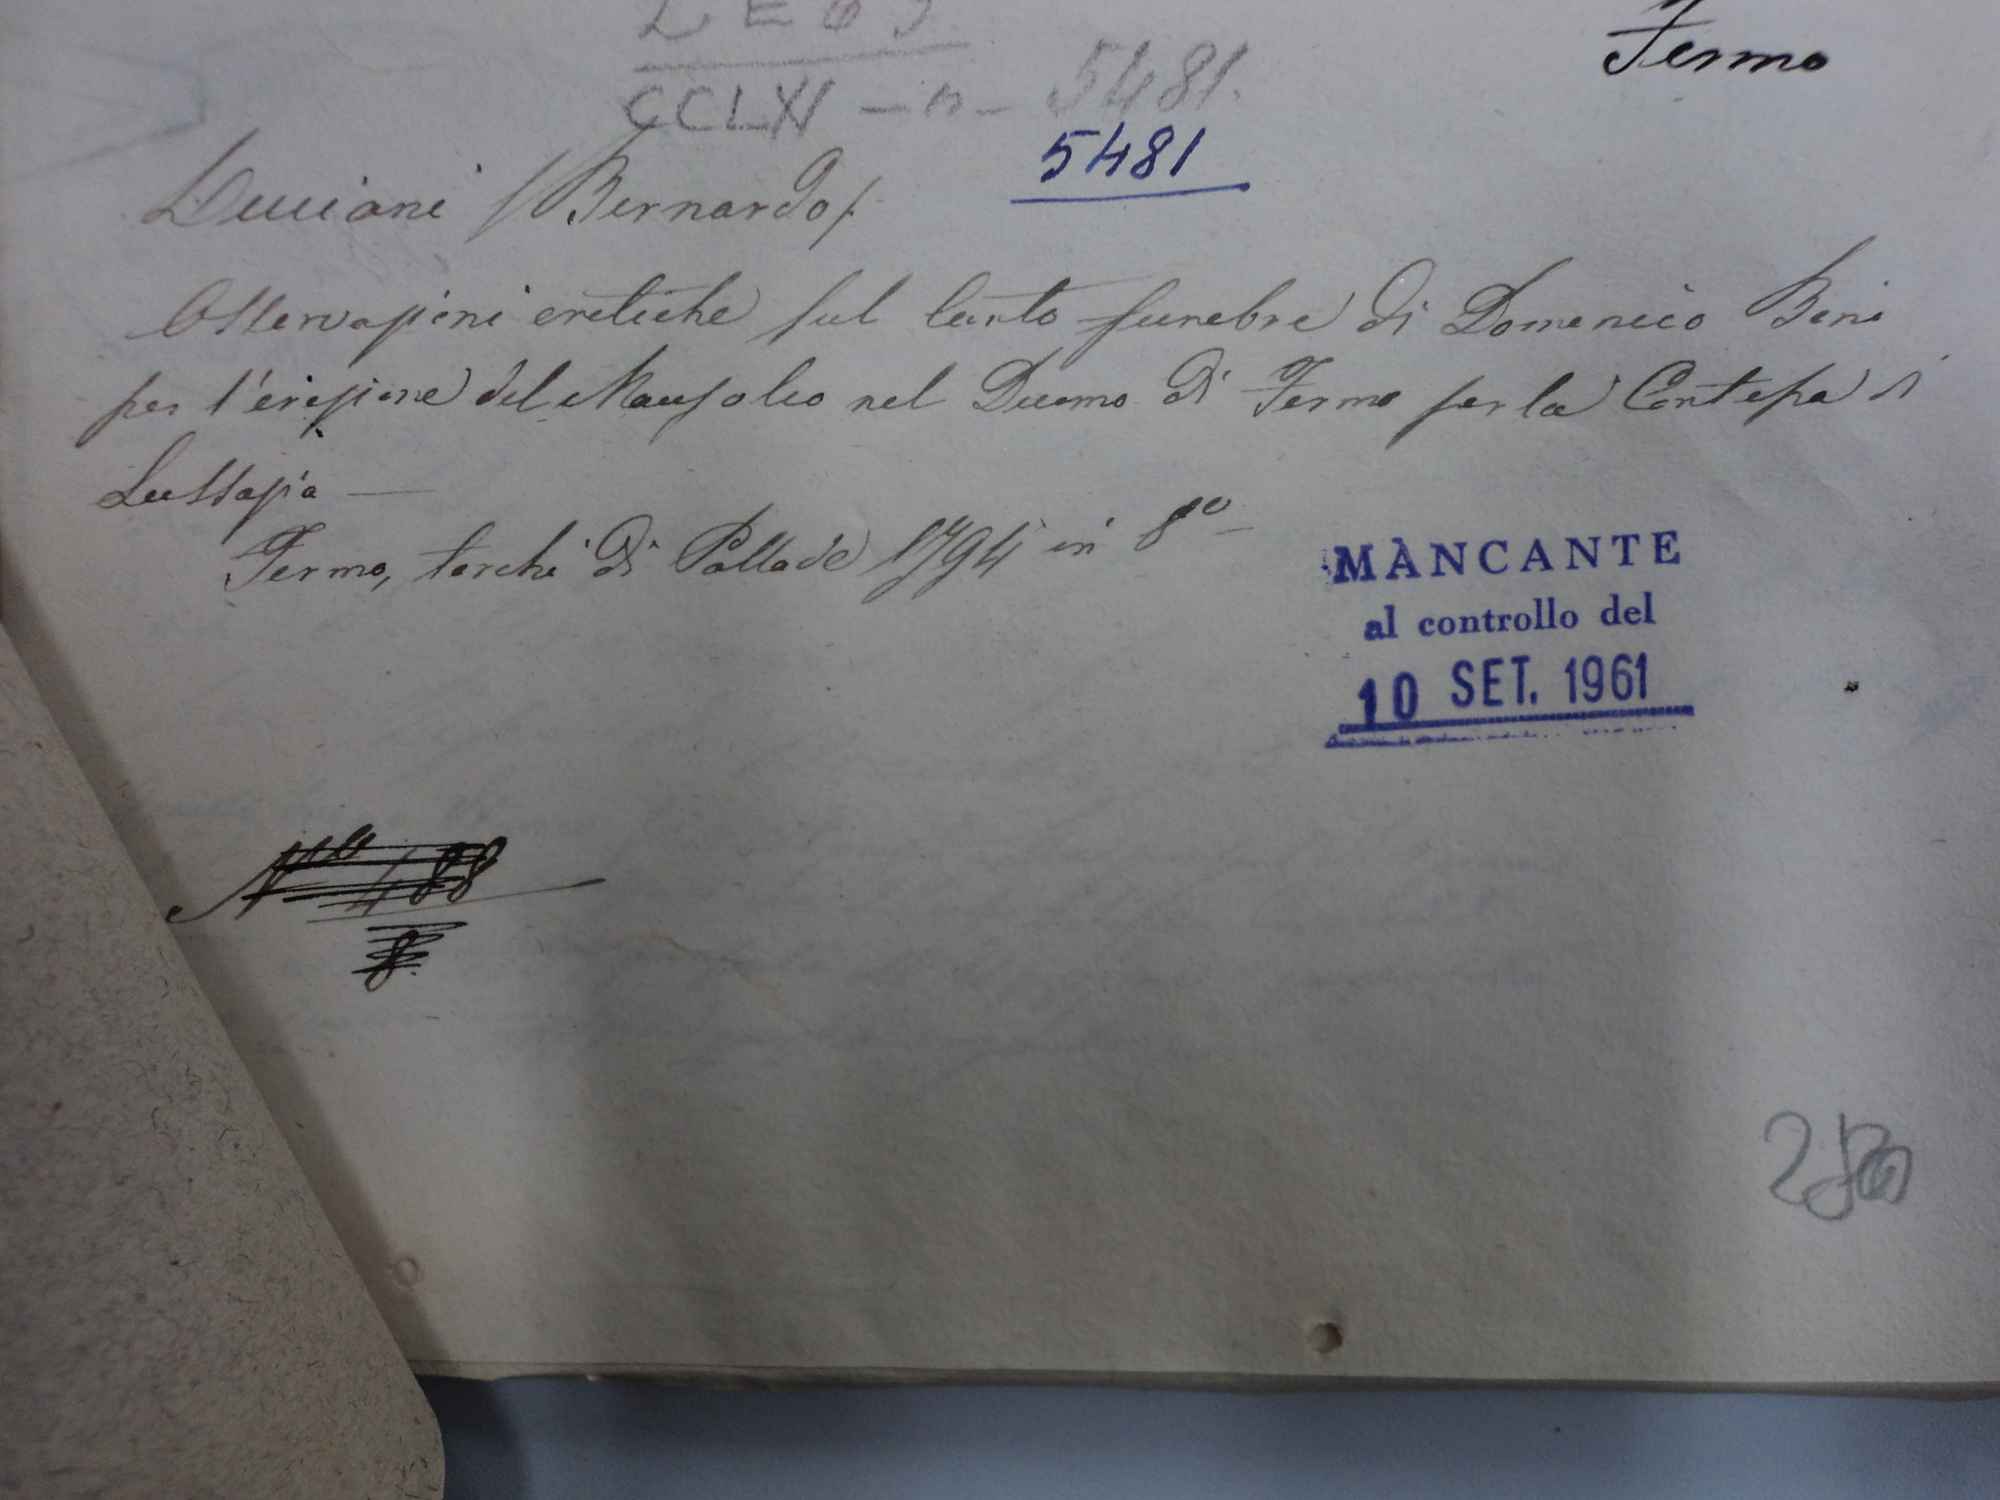 Fermo
CCLXI - n - 5481.
5481
Luciani /Bernardo/.
Osservazioni critiche sul canto funebre di Domenico Bini
per l'erezione del Mausoleo nel Duomo di Fermo per la Contessa di
Fermo, torchi di Pallade 1794 in 8º
MANCANTE
al controllo del
10 SET. 1961
Nº 488
8.